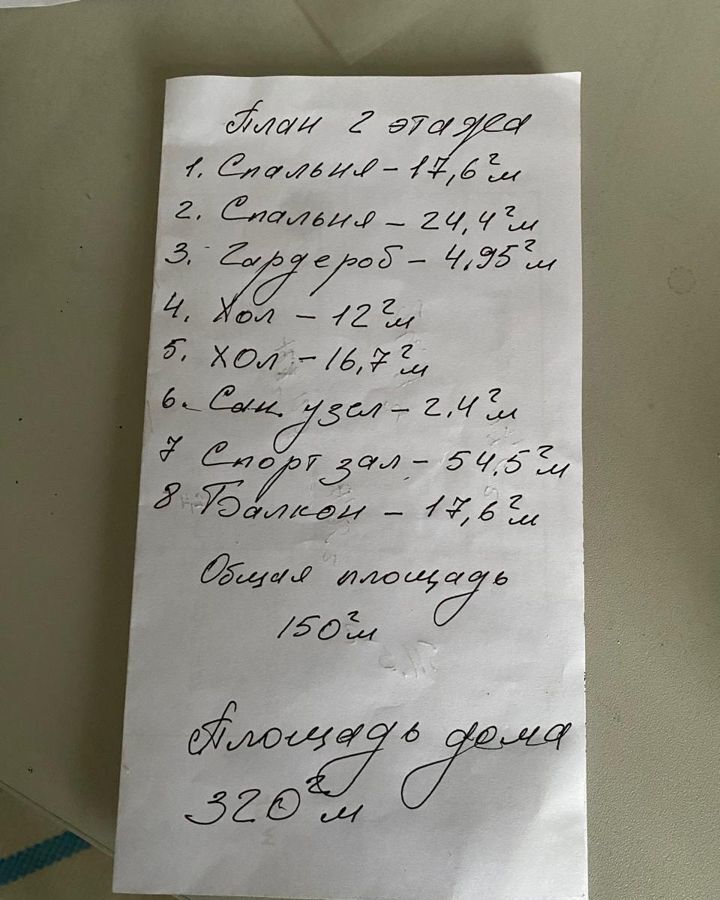 План 2 этажа
1. Спальня - 17,6²м
2. Спальня - 24,4²м
3. Гардероб - 4,95²м
4. Хол - 12²м
5. ХОл - 16,7²м
6. Сан. узел - 2.4²м
7 Спорт зал - 54,5²м
8 Балкон - 17,6²м
Общая площадь
150²м
Площадь дома
320²м